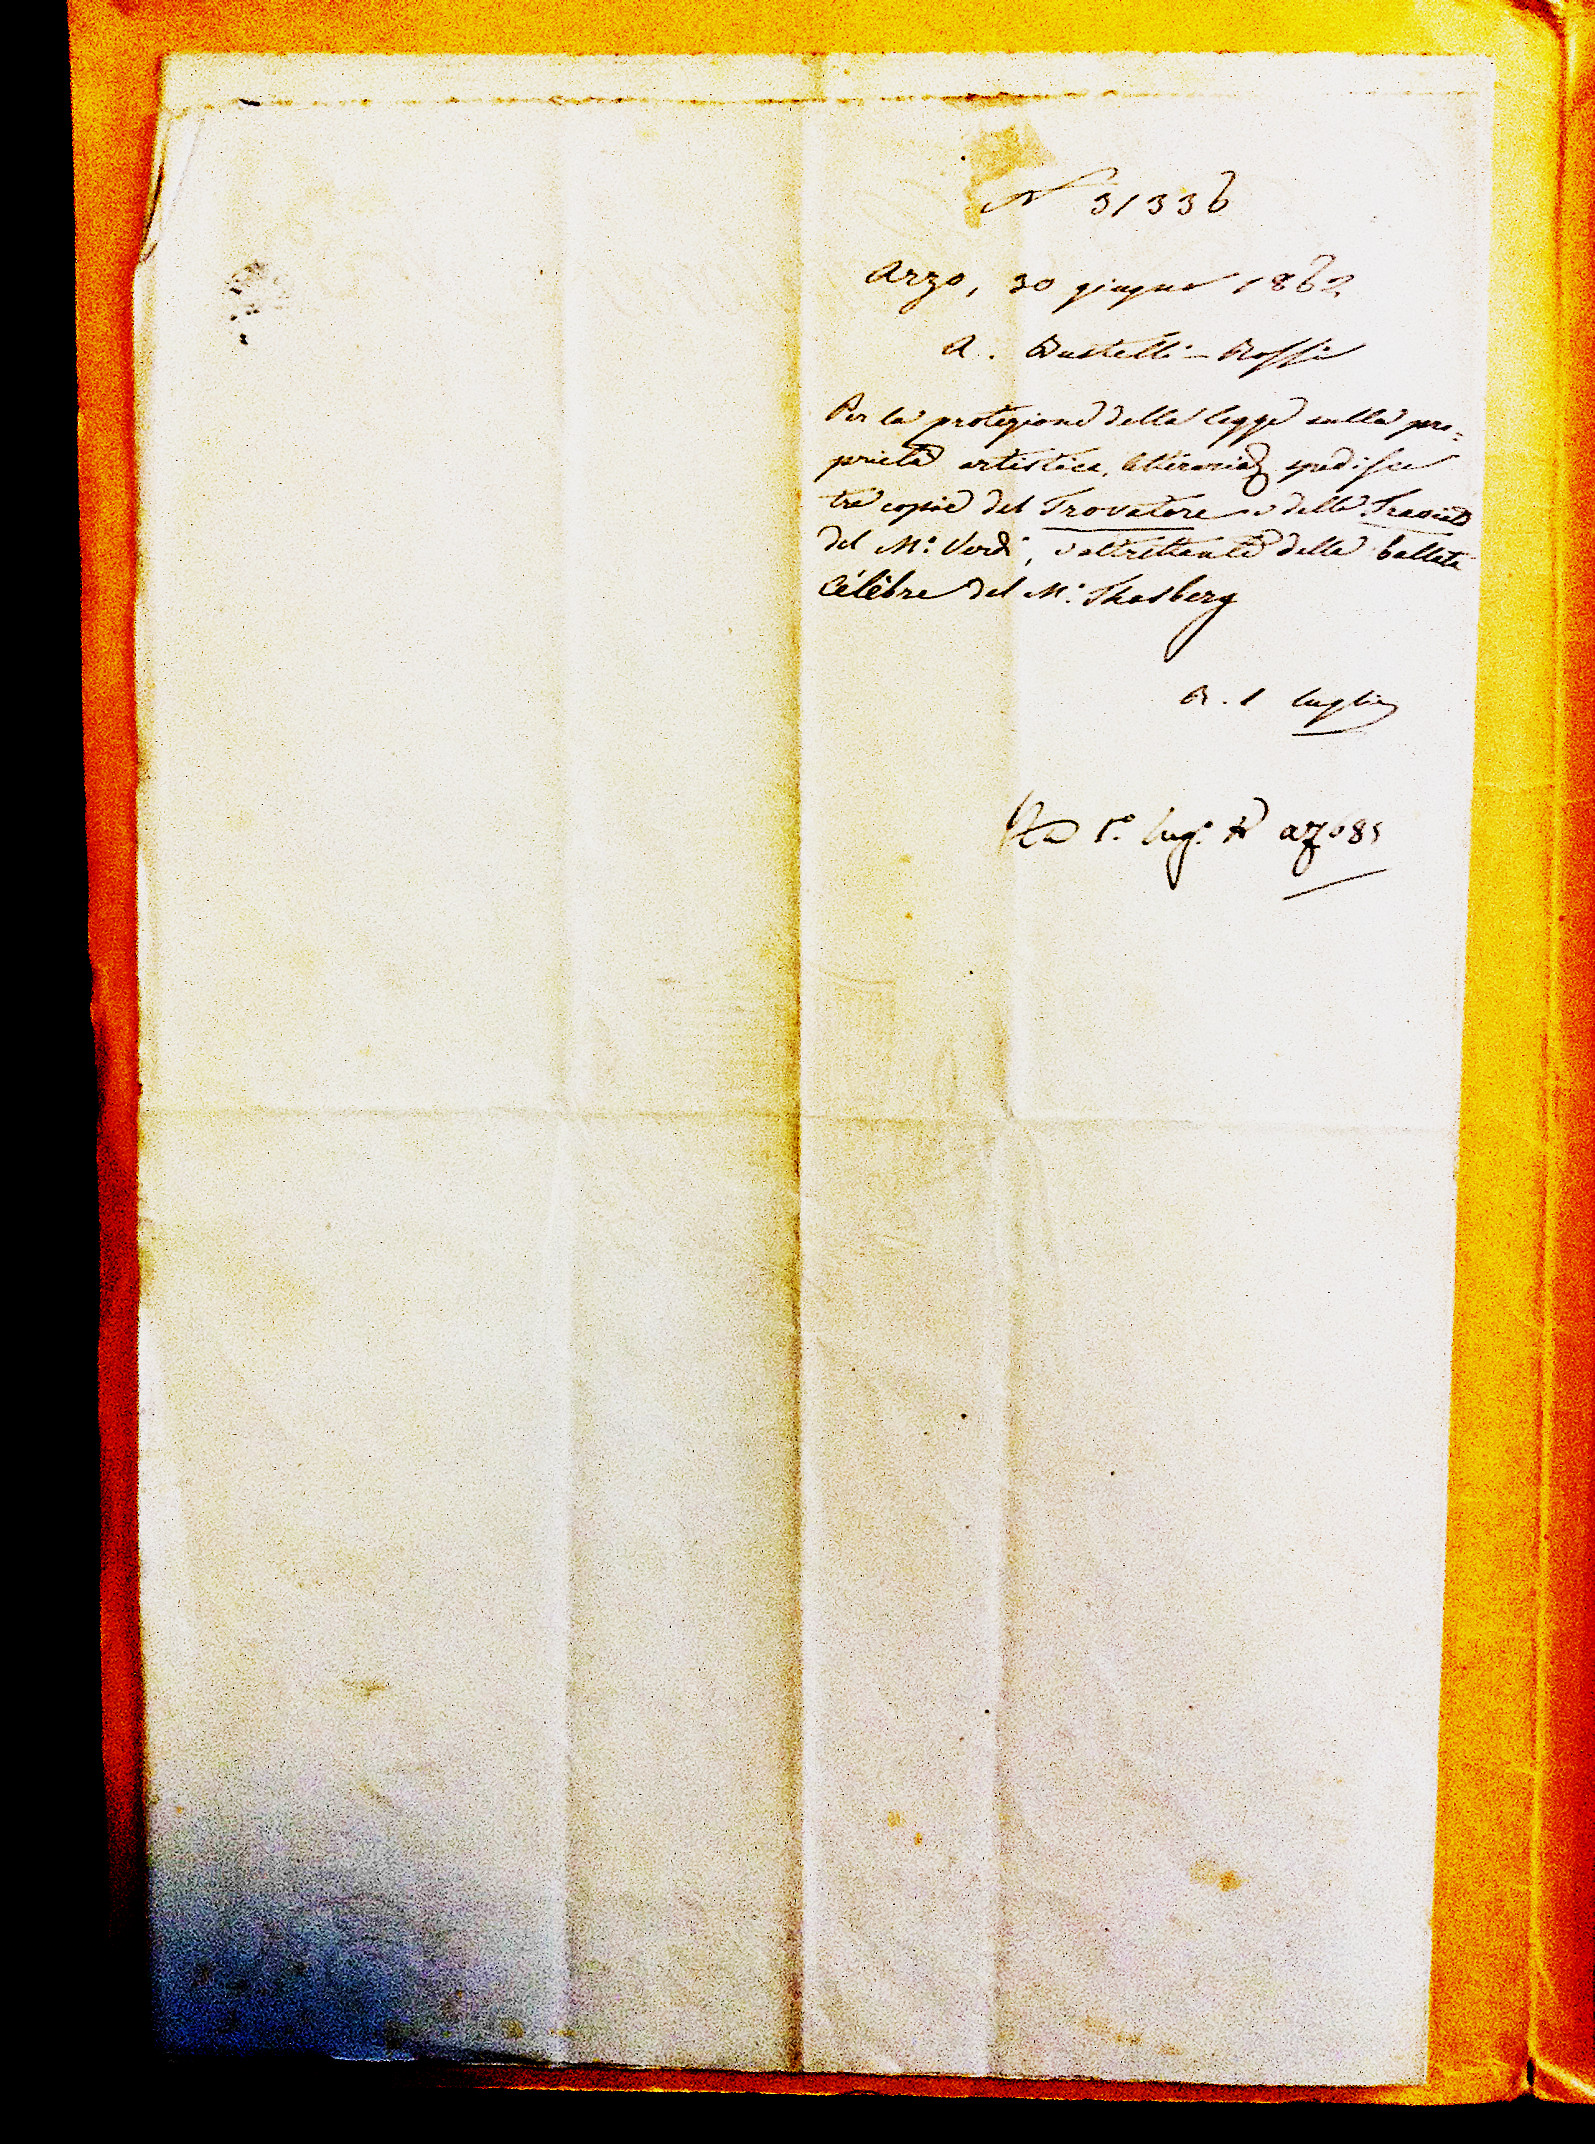 N 31336
Arzo, 30 giugno 1862
A. Bustelli-Rossi
Per la protezione della legge sulla pro=
prietà artistica, letteraria, spedisce
tre copie del Trovatore e della Traviata
del M.º Verdi, e altrettante della ballata
célèbre del M.º Thalberg
R. 1 luglio
1.º Lug.º